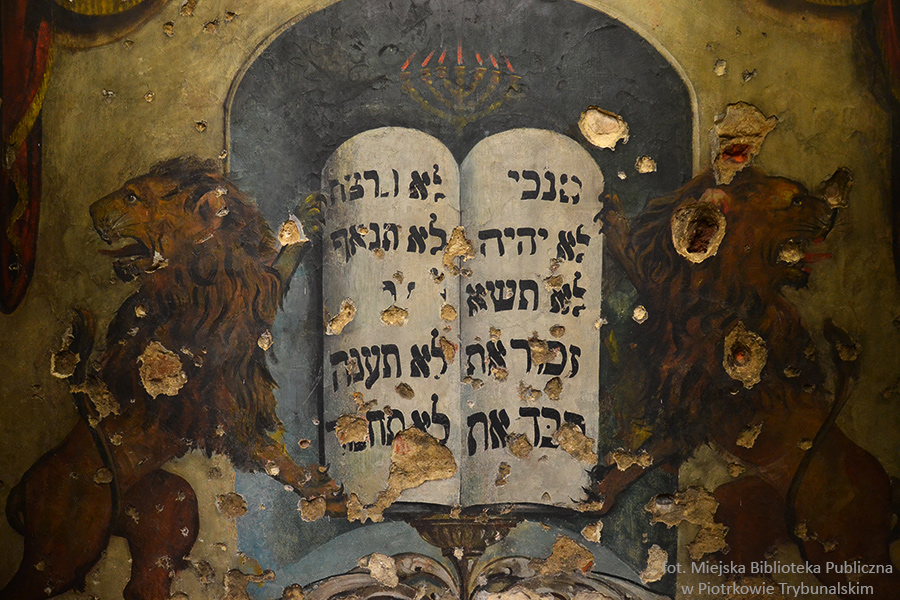 אנכי
לא יהיה
לא תשא
זכור את
כבד את
לא תרצח
לא תנאף
לא תענה
לא
fot. Miejska Biblioteka Publiczna
w Piotrkowie Trybunalskim